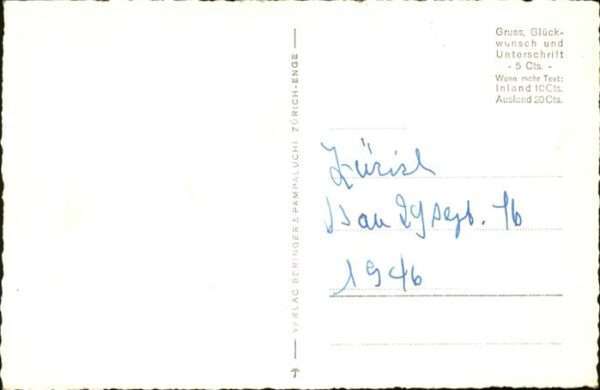 Gruss, Glück-
wunsch und
Unterschrift
- 5 Cts. -
Wenn mehr Text:
Inland 10 Cts.
Ausland 20 Cts.
VERLAG BERINGER & PAMPALUCHI ZÜRICH-ENGE
Zürich
au 29 sept. 46
1946